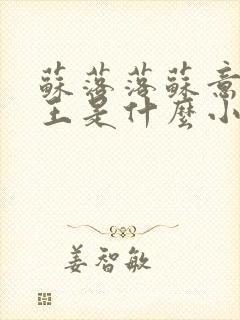 蘇落落蘇意
王是什麼小
姜智敏